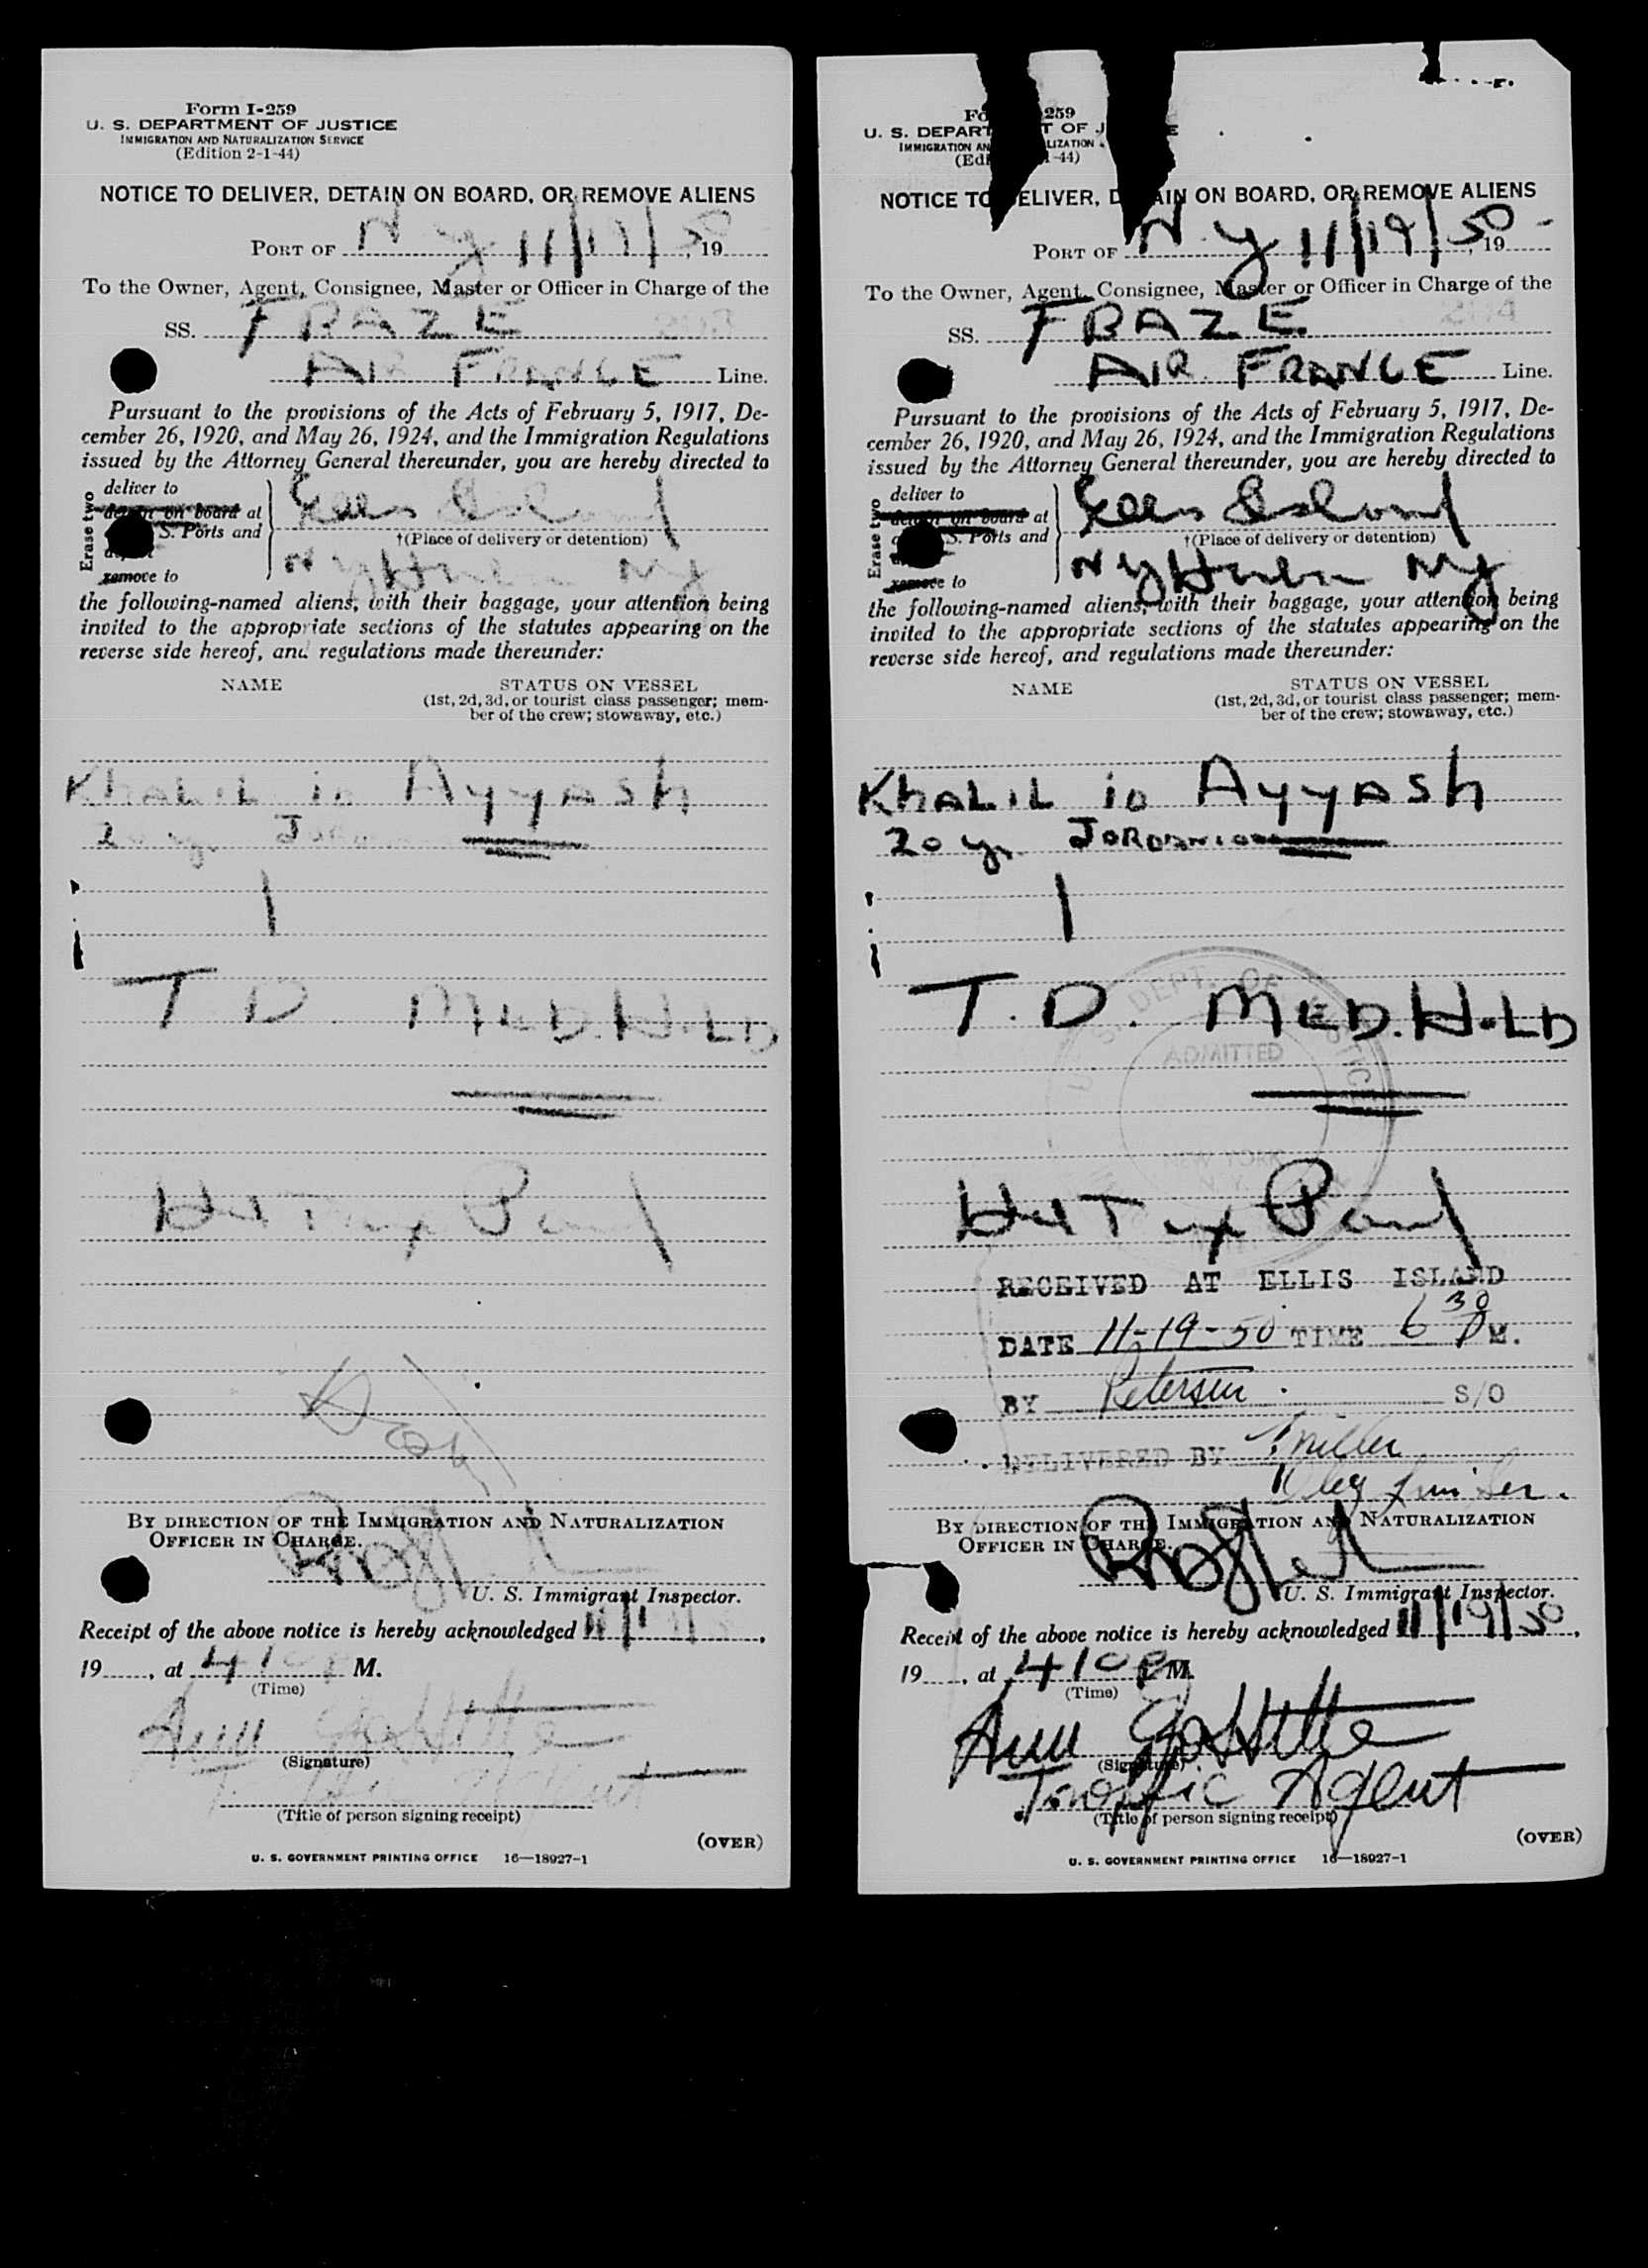 Form I-259
U. S. DEPARTMENT OF JUSTICE
IMMIGRATION AND NATURALIZATION SERVICE
(Edition 2-1-44)
NOTICE TO DELIVER, DETAIN ON BOARD, OR REMOVE ALIENS
PORT OF N y 11/19/50, 19
To the Owner, Agent, Consignee, Master or Officer in Charge of the
SS. FBAZE
AIR FRANCE Line.
Pursuant to the provisions of the Acts of February 5, 1917, De-
cember 26, 1920, and May 26, 1924, and the Immigration Regulations
issued by the Attorney General thereunder, you are hereby directed to
Erase two
deliver to
detain on board at
S. Ports and
remove to
Ellis Island
†(Place of delivery or detention)
Ny Harbor Ny
the following-named aliens, with their baggage, your attention being
invited to the appropriate sections of the statutes appearing on the
reverse side hereof, and regulations made thereunder:
NAME STATUS ON VESSEL
(1st, 2d, 3d, or tourist class passenger; mem-
ber of the crew; stowaway, etc.)
KhALIL io Ayyash
20 yr
1
T D MED. HOLD
BY DIRECTION OF THE IMMIGRATION AND NATURALIZATION
OFFICER IN CHARGE.
U. S. Immigrant Inspector.
Receipt of the above notice is hereby acknowledged 11/
19, at 410 P M.
(Time)
Ann
(Signature)
(Title of person signing receipt)
(OVER)
U. S. GOVERNMENT PRINTING OFFICE 16—18927-1
Fo 259
U. S. DEPART T OF J E
IMMIGRATION AN LIZATION
(Edi 1-44)
NOTICE TO DELIVER, DETAIN ON BOARD, OR REMOVE ALIENS
PORT OF N. y 11/19/50, 19
To the Owner, Agent, Consignee, Master or Officer in Charge of the
SS. FBAZE 2114
AIR FRANCE Line.
Pursuant to the provisions of the Acts of February 5, 1917, De-
cember 26, 1920, and May 26, 1924, and the Immigration Regulations
issued by the Attorney General thereunder, you are hereby directed to
Erase two
deliver to
detain on board at
S. Ports and
remove to
Ellis Island
†(Place of delivery or detention)
Ny Harbor Ny
the following-named aliens, with their baggage, your attention being
invited to the appropriate sections of the statutes appearing on the
reverse side hereof, and regulations made thereunder:
NAME STATUS ON VESSEL
(1st, 2d, 3d, or tourist class passenger; mem-
ber of the crew; stowaway, etc.)
KhALIL io Ayyash
20 yr JORDANIAN
1
T. D. MED. HOLD
DEPT. OF
ADMITTED
NEW YORK
N.Y.
Hd Tax Paid
RECEIVED AT ELLIS ISLAND
DATE 11-19-50 TIME 6 30 P M.
BY Petersen S/O
DELIVERED BY Miller
BY DIRECTION OF THE IMMIGRATION AND NATURALIZATION
OFFICER IN CHARGE.
U. S. Immigrant Inspector.
Receipt of the above notice is hereby acknowledged 11/19/50,
19, at 410 P M.
(Time)
Ann
(Signature)
Traffic Agent
(Title of person signing receipt)
(OVER)
U. S. GOVERNMENT PRINTING OFFICE 16—18927-1